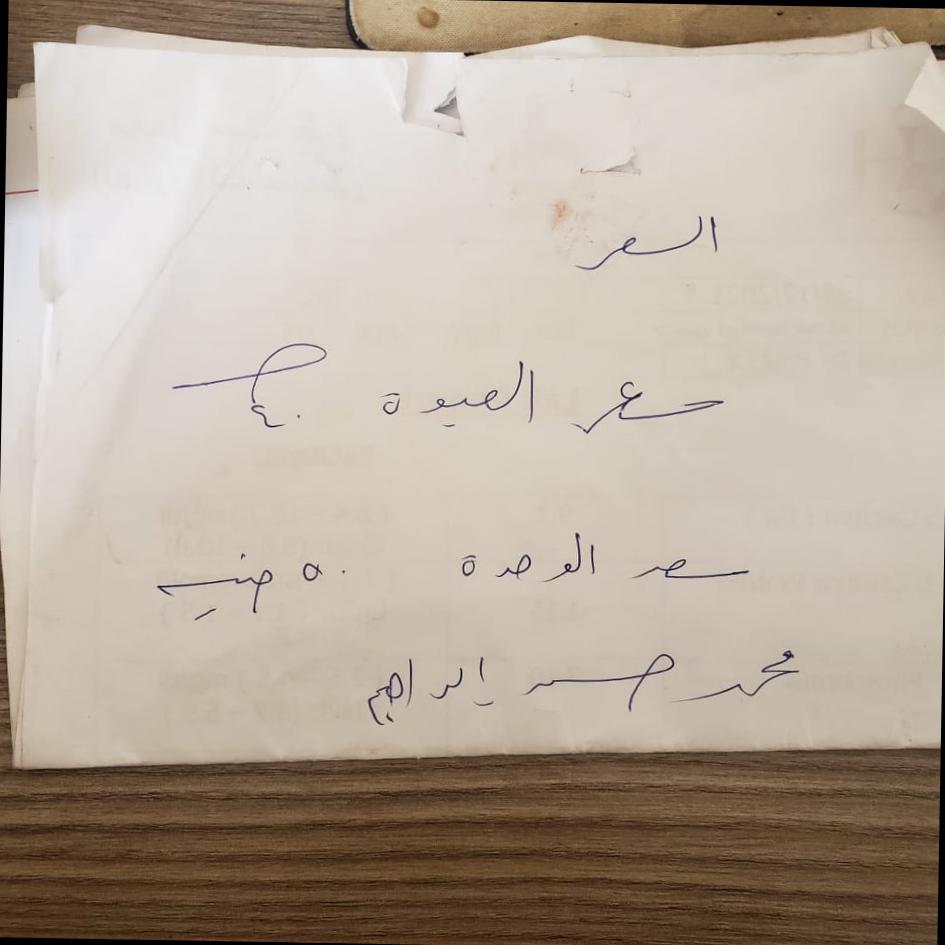 السعر
سعر العبوة ٤٠ ج
سعر الوحدة ٥٠ جنيه
محمد حسن إبراهيم